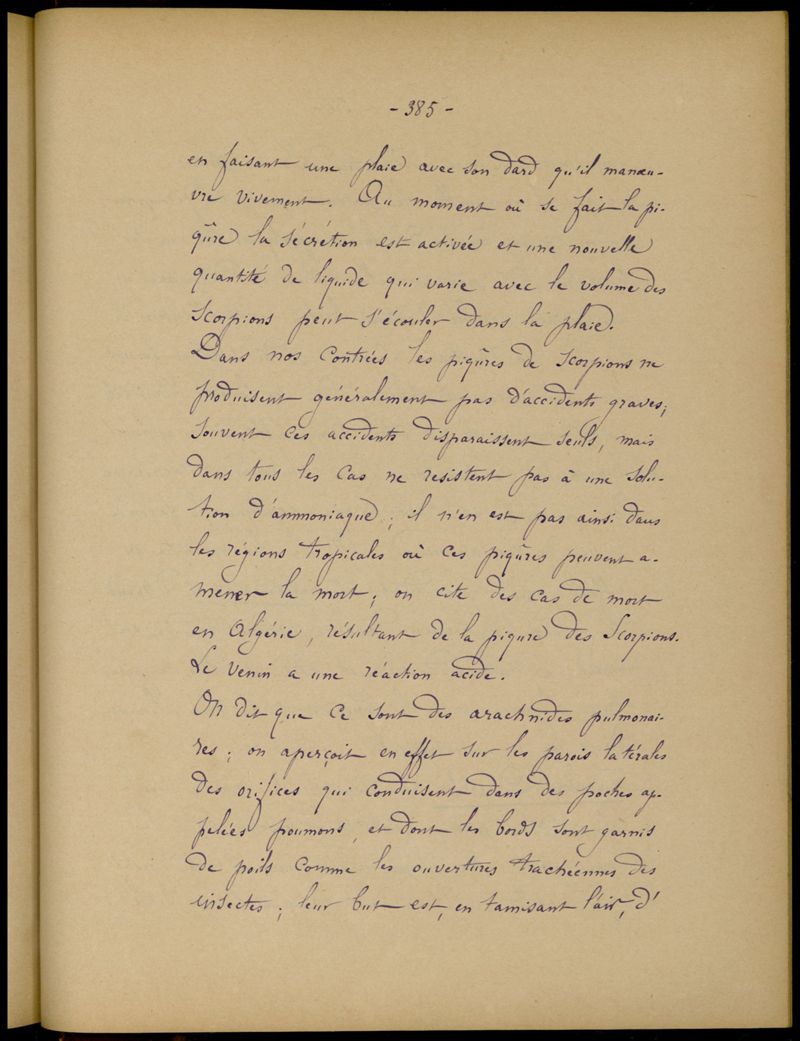 - 385 -
en faisant une plaie avec son dard qu'il manœu-
vre vivement. Au moment où se fait la pi-
qûre la sécrétion est activée et une nouvelle
quantité de liquide qui varie avec le volume des
Scorpions peut s'écouler dans la plaie.
Dans nos contrées les piqûres de Scorpions ne
produisent généralement pas d'accidents graves;
souvent ces accidents disparaissent seuls, mais
dans tous les cas ne resistent pas à une solu-
tion d'ammoniaque; il n'en est pas ainsi dans
les régions tropicales où ces piqûres peuvent a-
mener la mort; on cite des cas de mort
en Algérie, résultant de la piqure des Scorpions.
Le venin a une réaction acide.
On dit que ce sont des arachnides pulmonai-
res; on aperçoit en effet sur les parois latérales
des orifices qui conduisent dans des poches ap-
pelées poumons, et dont les bords sont garnis
de poils comme les ouvertures trachéennes des
insectes; leur but est, en tamisant l'air, d'